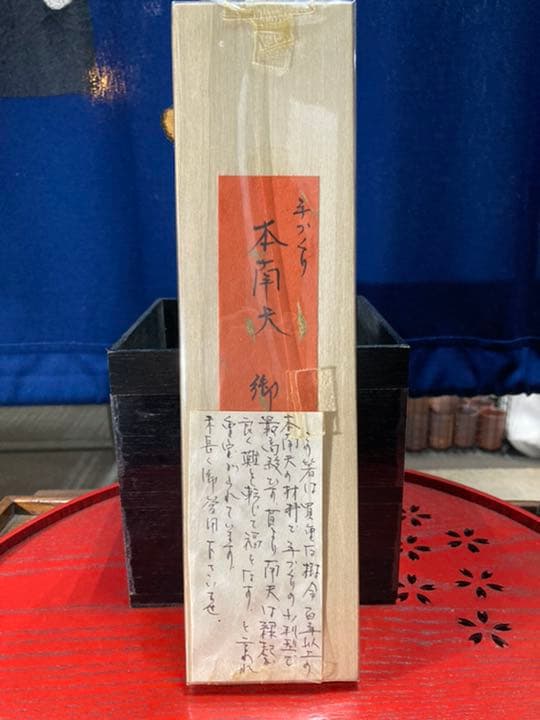 手づくり
本南天
御
この箸は貴重な樹令百年以上の
本南天の材料で手づくりの小判型で
最高級です 昔より南天は縁起
良く難を転じて福となす と言われ
重宝がられています。
末長く御愛用下さいませ。